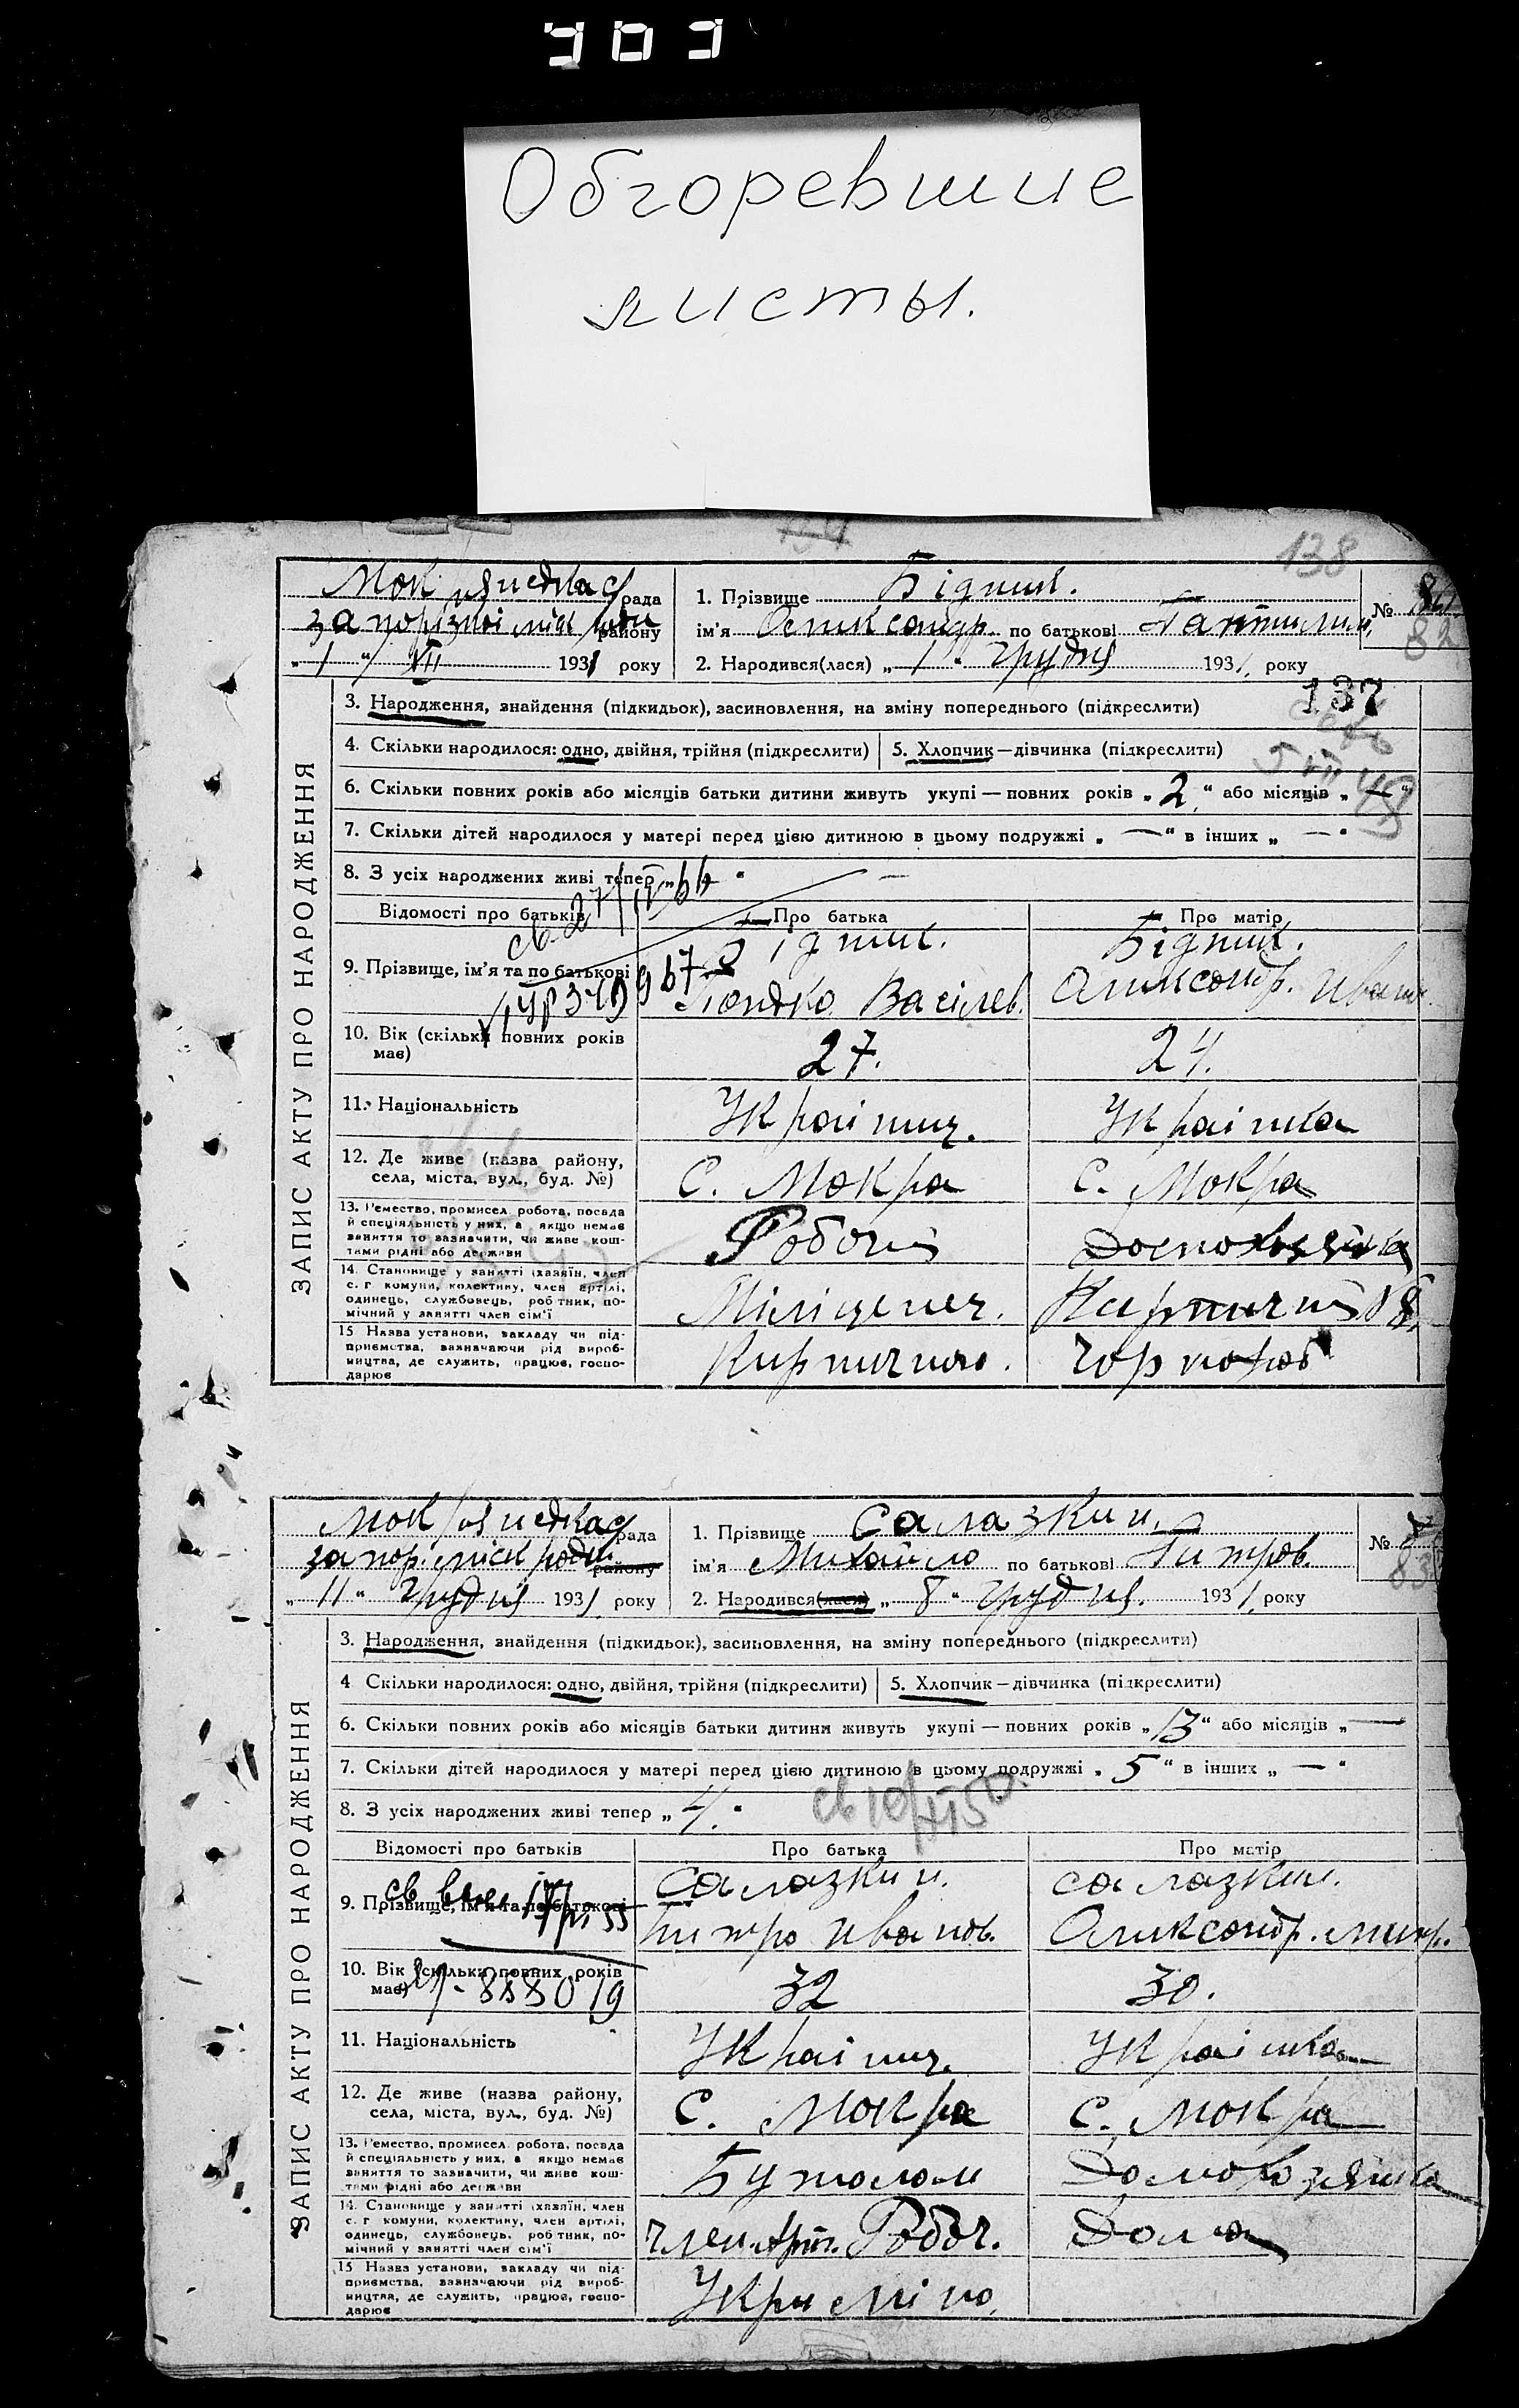 303
Обгоревшие
листы.
138
рада
району
„ 1 “ VII 1931 року
1. Прізвище Бідник.
ім'я по батькові
2. Народився(лася) „ 1 “ грудня 1931, року
№
82
137
ЗАПИС АКТУ ПРО НАРОДЖЕННЯ
3. Народження, знайдення (підкидьок), засиновлення, на зміну попереднього (підкреслити)
4. Скільки народилося: одно, двійня, трійня (підкреслити)
5. Хлопчик — дівчинка (підкреслити)
6. Скільки повних років або місяців батьки дитини живуть укупі — повних років „ 2 “ або місяців „ — “
7. Скільки дітей народилося у матері перед цією дитиною в цьому подружжі „ — “ в інших „ — “
8. З усіх народжених живі тепер „ “ —
Відомості про батьків
Про батька
Про матір
9. Прізвище, ім'я та по батькові
Бідник.
Василев.
Бідник.
Олександр. Иван.
10. Вік (скільки повних років має)
27.
24.
11. Національність
Українец.
Українка
12. Де живе (назва району, села, міста, вул., буд. №)
С. Мокра
С. Мокра
13. Ремество, промисел, робота, посада й спеціяльність у них, а якщо немає заняття то зазначити, чи живе коштами рідні або держави
Робочий
14. Становище у занятті (хазяїн, член с. г. комуни, колективу, член артілі, одинець, службовець, робітник, помічний у занятті член сім'ї
Міліціонер.
15. Назва установи, закладу чи підприємства, зазначаючи рід виробництва, де служить, працює, господарює
рада
району
„ 11 “ грудня 1931, року
1. Прізвище Салазкин.
ім'я Михайло по батькові Питров.
2. Народився(лася) „ 8 “ грудня. 1931, року
№
83
ЗАПИС АКТУ ПРО НАРОДЖЕННЯ
3. Народження, знайдення (підкидьок), засиновлення, на зміну попереднього (підкреслити)
4. Скільки народилося: одно, двійня, трійня (підкреслити)
5. Хлопчик — дівчинка (підкреслити)
6. Скільки повних років або місяців батьки дитини живуть укупі — повних років „ 13 “ або місяців „ —
7. Скільки дітей народилося у матері перед цією дитиною в цьому подружжі „ 5 “ в інших „ — “
8. З усіх народжених живі тепер „ 4. “
Відомості про батьків
Про батька
Про матір
9. Прізвище, ім'я та по батькові
Салазкин.
Питро Иванов.
Салазкин.
Олександр.
10. Вік (скільки повних років має)
32
30.
11. Національність
Українец.
Українка
12. Де живе (назва району, села, міста, вул., буд. №)
С. Мокра
С. Мокра
13. Ремество, промисел, робота, посада й спеціяльність у них, а якщо немає заняття то зазначити, чи живе коштами рідні або держави
Бутолом
Домохозяйка
14. Становище у занятті (хазяїн, член с. г. комуни, колективу, член артілі, одинець, службовець, робітник, помічний у занятті член сім'ї
член. Робоч.
Дома
15. Назва установи, закладу чи підприємства, зазначаючи рід виробництва, де служить, працює, господарює